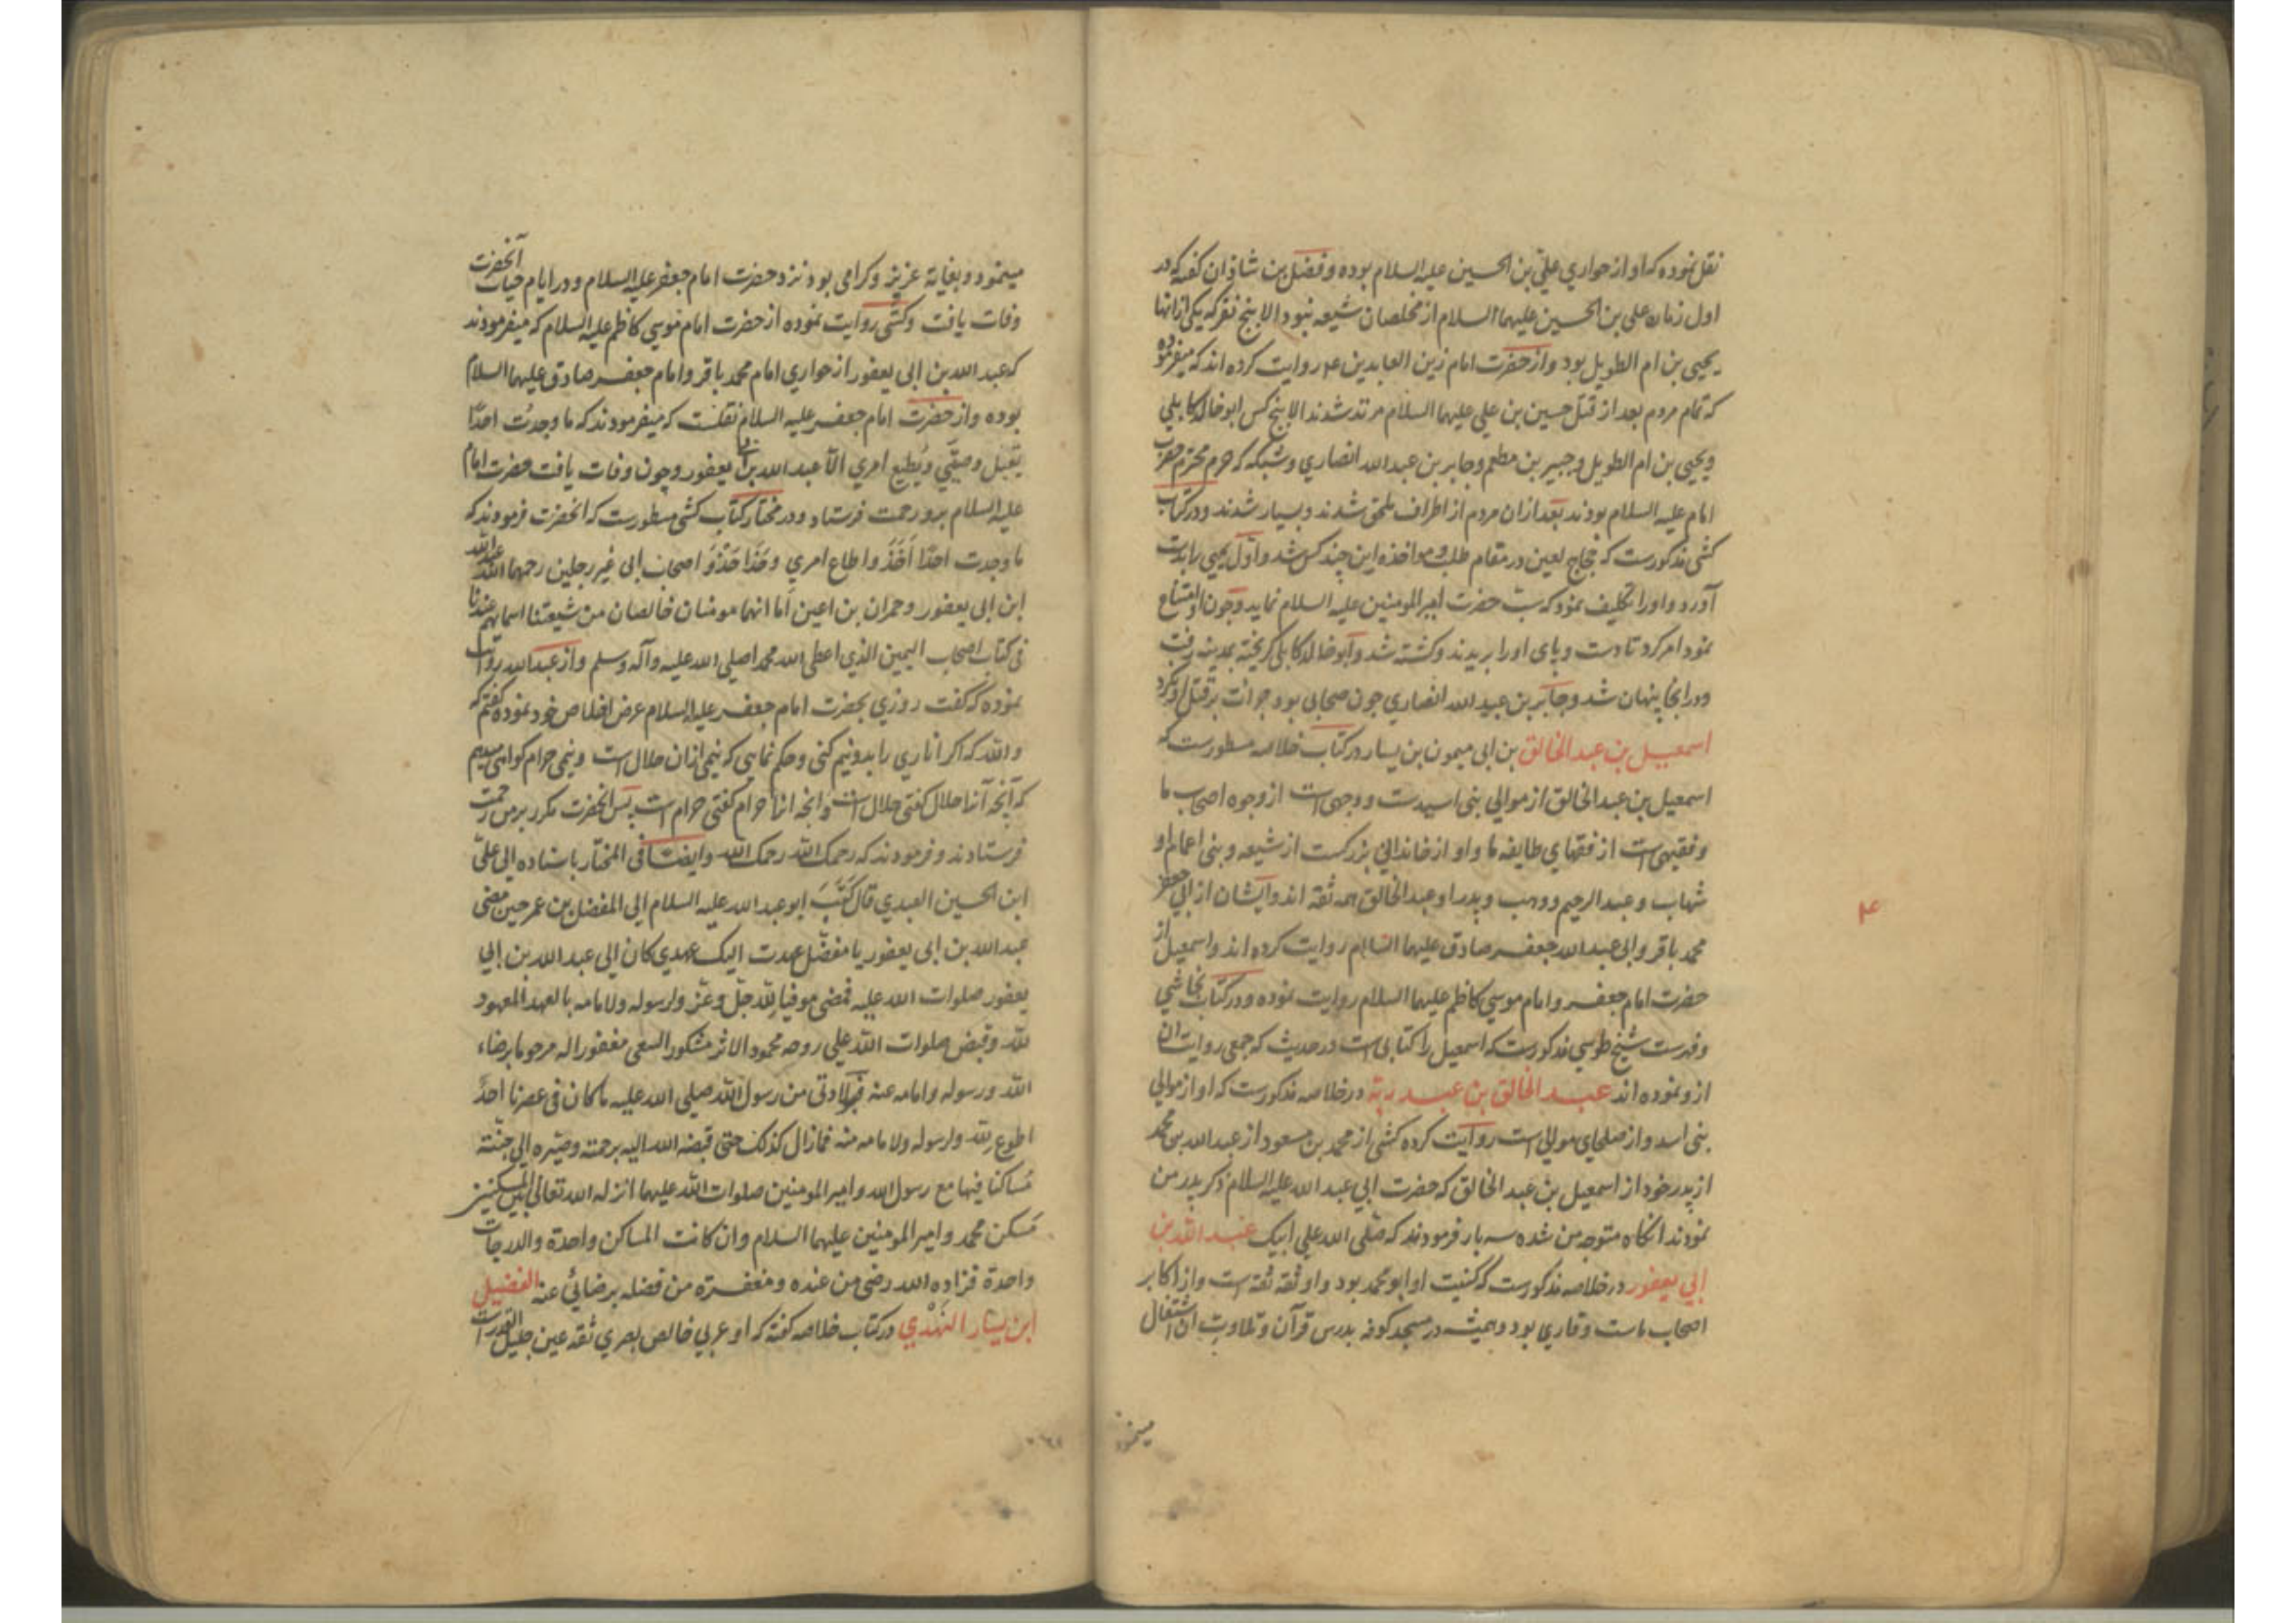 نقل نموده که او از حواری علی بن الحسین علیه السلام بوده و فضل بن شاذان گفته که در
اول زمان علی بن الحسین علیهما السلام از مخلصان شیعه نبود الا پنج نفر که یکی از آنها
یحیی بن ام الطویل بود و از حضرت امام زین العابدین ع روایت کرده اند که میفرموده
که تمام مردم بعد از قتل حسین بن علی علیهما السلام مرتد شدند الا پنج کس ابو خالد کابلی
و یحیی بن ام الطویل و جبیر بن مطعم و جابر بن عبد الله انصاری و شبکه که حرم محترم حضرت
امام علیه السلام بودند بعد ازان مردم از اطراف ملحق شدند و بسیار شدند و در کتاب
کشی مذکورست که حجاج لعین در مقام طلب و مواخذه این چند کس شد و اول یحیی را بدست
آورد و او را تکلیف نمود که سب حضرت امیر المومنین علیه السلام نماید و چون او امتناع
نمود امر کرد تا دست و پای او را بریدند و کشته شد و ابو خالد کابلی گریخته بمدینه رفت
و در انجا پنهان شد و جابر بن عبد الله انصاری چون صحابی بود جرات بر قتل او نکرد
اسمعیل بن عبد الخالق بن ابی میمون بن یسار در کتاب خلاصه مسطورست که
اسمعیل بن عبد الخالق از موالی بنی اسدست و وجهی است از وجوه اصحاب ما
و فقیهی است از فقهای طایفه ما و او از خاندانی بزرگست از شیعه و بنی اعمام او
شهاب و عبد الرحیم و وهب و پدر او عبد الخالق همه ثقه اند و ایشان از ابی جعفر
محمد باقر و ابی عبد الله جعفر صادق علیهما السلام روایت کرده اند و اسمعیل از
حضرت امام جعفر و امام موسی کاظم علیهما السلام روایت نموده و در کتاب نجاشی
و فهرست شیخ طوسی مذکورست که اسمعیل را کتابی است در حدیث که جمعی روایت ان
ازو نموده اند عبد الخالق بن عبد ربه در خلاصه مذکورست که او از موالی
بنی اسد و از صلحای موالی است روایت کرده کشی از محمد بن مسعود از عبد الله بن محمد
از پدر خود از اسمعیل بن عبد الخالق که حضرت ابی عبد الله علیه السلام ذکر پدر من
نمودند انگاه متوجه من شده سه بار فرمودند که صلی الله علی ابیک عبد الله بن
ابی یعفور در خلاصه مذکورست که کنیت او ابو محمد بود و او ثقه ثقه است و از اکابر
اصحاب ماست و قاری بود و همیشه در مسجد کوفه بدرس قرآن و تلاوت ان اشتغال
میںمود
ع
میںمود و بغایة عزیز و کرامی بود نزد حضرت امام جعفر علیه السلام و در ایام حیات آنحضرت
وفات یافت و کشی روایت نموده از حضرت امام موسی کاظم علیه السلام که میفرمودند
که عبد الله بن ابی یعفور از حواری امام محمد باقر و امام جعفر صادق علیهما السلام
بوده و از حضرت امام جعفر علیه السلام نقلست که میفرمودند که ما وجدت احدًا
یقبل وصیتی و یطیع امری الا عبد الله بن ابی یعفور و چون وفات یافت حضرت امام
علیه السلام برو رحمت فرستاد و در مختار کتاب کشی مسطورست که انحضرت فرمودند که
ما وجدت احدًا اخذ و اطاع امری و حذا حذو اصحاب ابی غیر رجلین رحمهما الله عبد الله
ابن ابی یعفور و حمران بن اعین اما انهما مومنان خالصان من شیعتنا اسمائهم عندنا
فی کتاب اصحاب الیمین الذی اعطی الله محمدا صلی الله علیه وآله وسلم و از عبد الله روایت
نموده که گفت روزی بحضرت امام جعفر علیه السلام عرض اخلاص خود نموده گفتم که
والله که اگر اناری را بدو نیم کنی و حکم نمایی که نیمی ازان حلال است و نیمی حرام گواهی میدهم
که آنچه آنرا حلال گفتی حلال است و انچه انرا حرام گفتی حرام است پس انحضرت مکرر بر من رحمت
فرستادند و فرمودند که رحمک الله رحمک الله و ایضًا فی المختار باسناده الی علی
ابن الحسین العبدی قال کتب ابو عبد الله علیه السلام الی المفضل بن عمر حین مضی
عبد الله بن ابی یعفور یا مفضل عهدت الیک عهدی کان الی عبد الله بن ابی
یعفور صلوات الله علیه فمضی موفیا لله جل و عز و لرسوله و لامامه بالعهد المعهود
لله و قبض صلوات الله علی روحه محمود الاثر مشکور السعی مغفورا له مرحوما برضاء
الله و رسوله و امامه عنه فبولادتی من رسول الله صلی الله علیه ما کان فی عصرنا احدٌ
اطوع لله و لرسوله و لامامه منه فما زال کذلک حتی قبضه الله الیه برحمته و صیره الی جنته
مساکنا فیها مع رسول الله و امیر المومنین صلوات الله علیهما انزله الله تعالی بین المسکنین
مسکن محمد و امیر المومنین علیهما السلام و ان کانت المساکن واحدة و الدرجات
واحدة فزاده الله رضی من عنده و مغفرة من فضله برضائی عنه الفضیل
ابن یسار النهدی در کتاب خلاصه گفته که او عربی خالص بصری ثقه عین جلیل القدرست